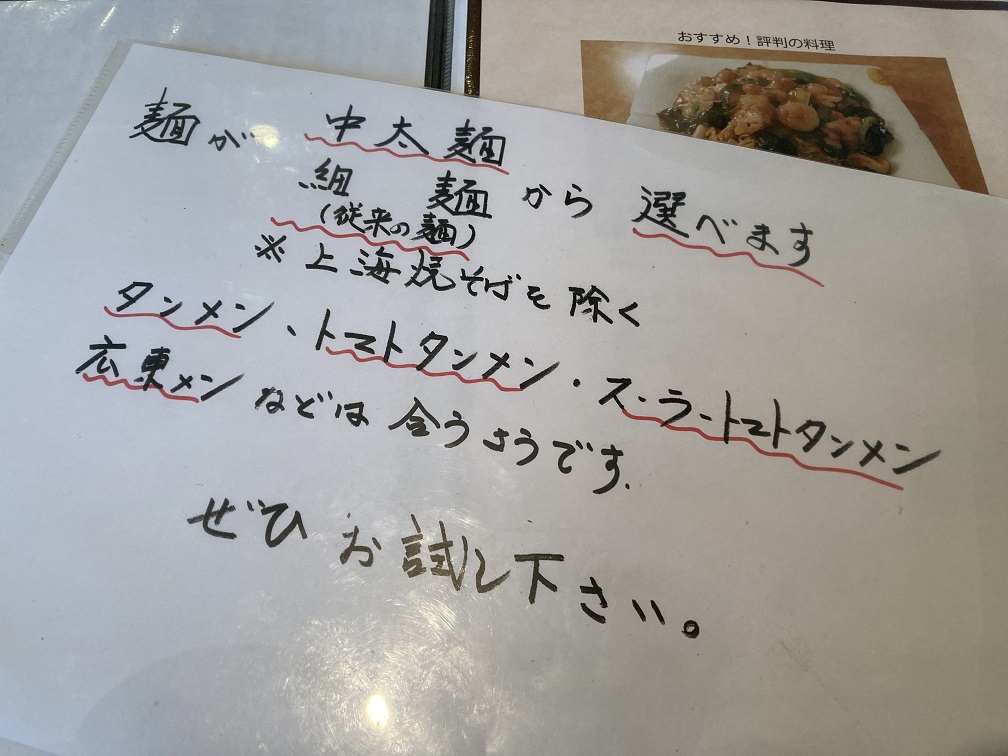 おすすめ！評判の料理
麺が 中太麺
細麺 から 選べます
(従来の麺)
※上海焼そばを除く
タンメン、トマトタンメン・スーラートマトタンメン
広東メン などは 合うようです.
ぜひ お試し下さい。